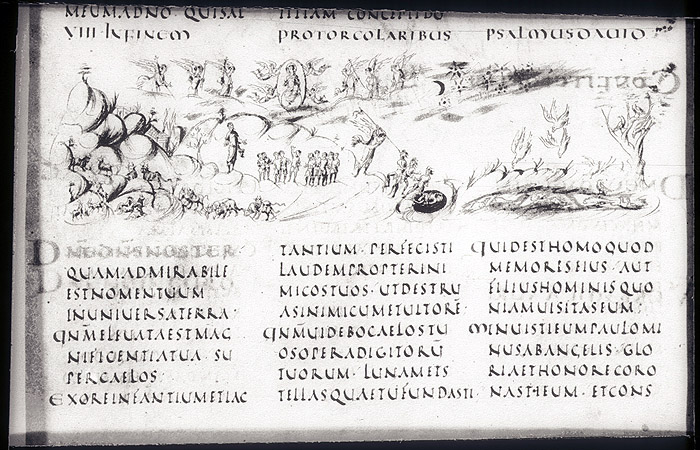 VIII IN FINEM PROTORCOLARIBUS PSALMUSDAUID
QUAMADMIRABILE
ESTNOMENTUUM
INUNIUERSATERRA·
QNMELEUATAESTMAG
NIFICENTIATUA· SU
PERCAELOS·
EXOREINFANTIUMETLAC
TANTIUM· PERFECISTI
LAUDEMPROPTERINI
MICOSTUOS· UTDESTRU
ASINIMICUMETULTORĒ·
QNM̄UIDEBOCAELOSTU
OSOPERADIGITORŪ
TUORUM· LUNAMETS
TELLASQUAETUFUNDASTI·
QUIDESTHOMOQUOD
MEMORESEIUS· AUT
FILIUSHOMINISQUO
NIAMUISITASEUM·
MINUISTIEUMPAULOMI
NUSABANGELIS· GLO
RIAETHONORECORO
NASTIEUM· ETCONS